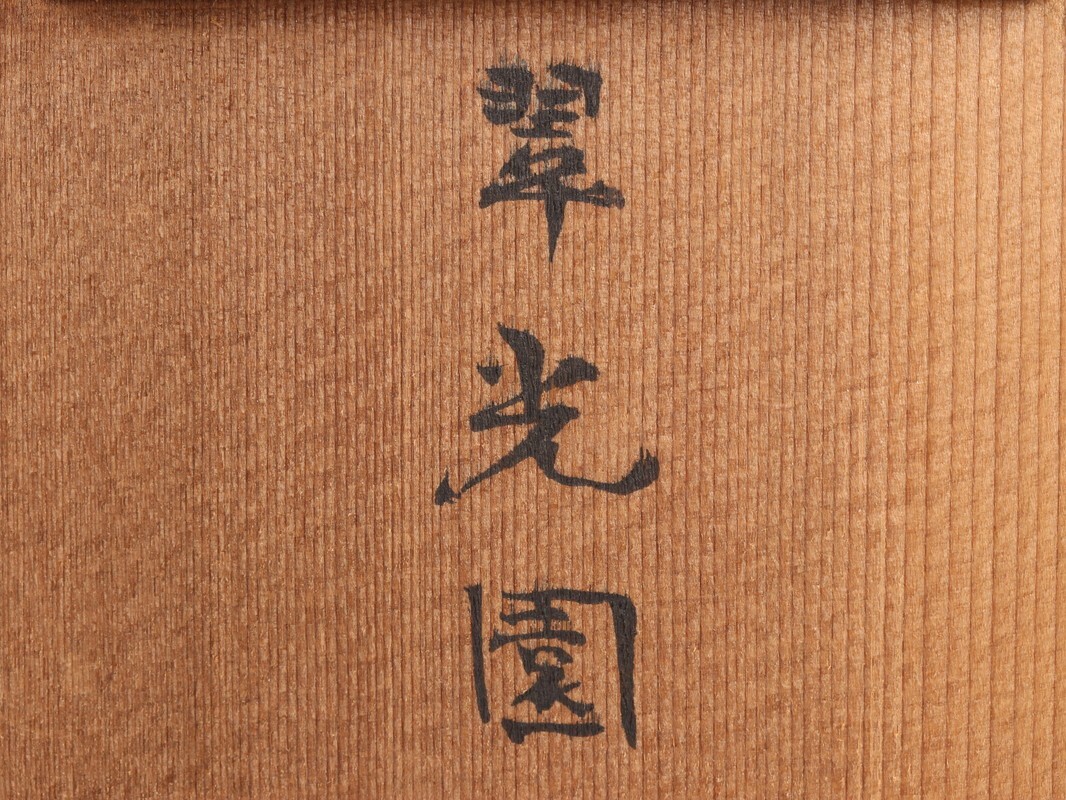 翠光園